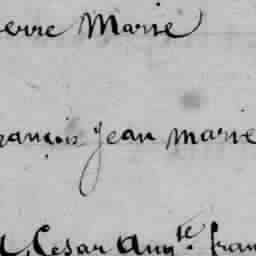 ierre Marie
rançois Jean Marie
Cesar Aug.te fran